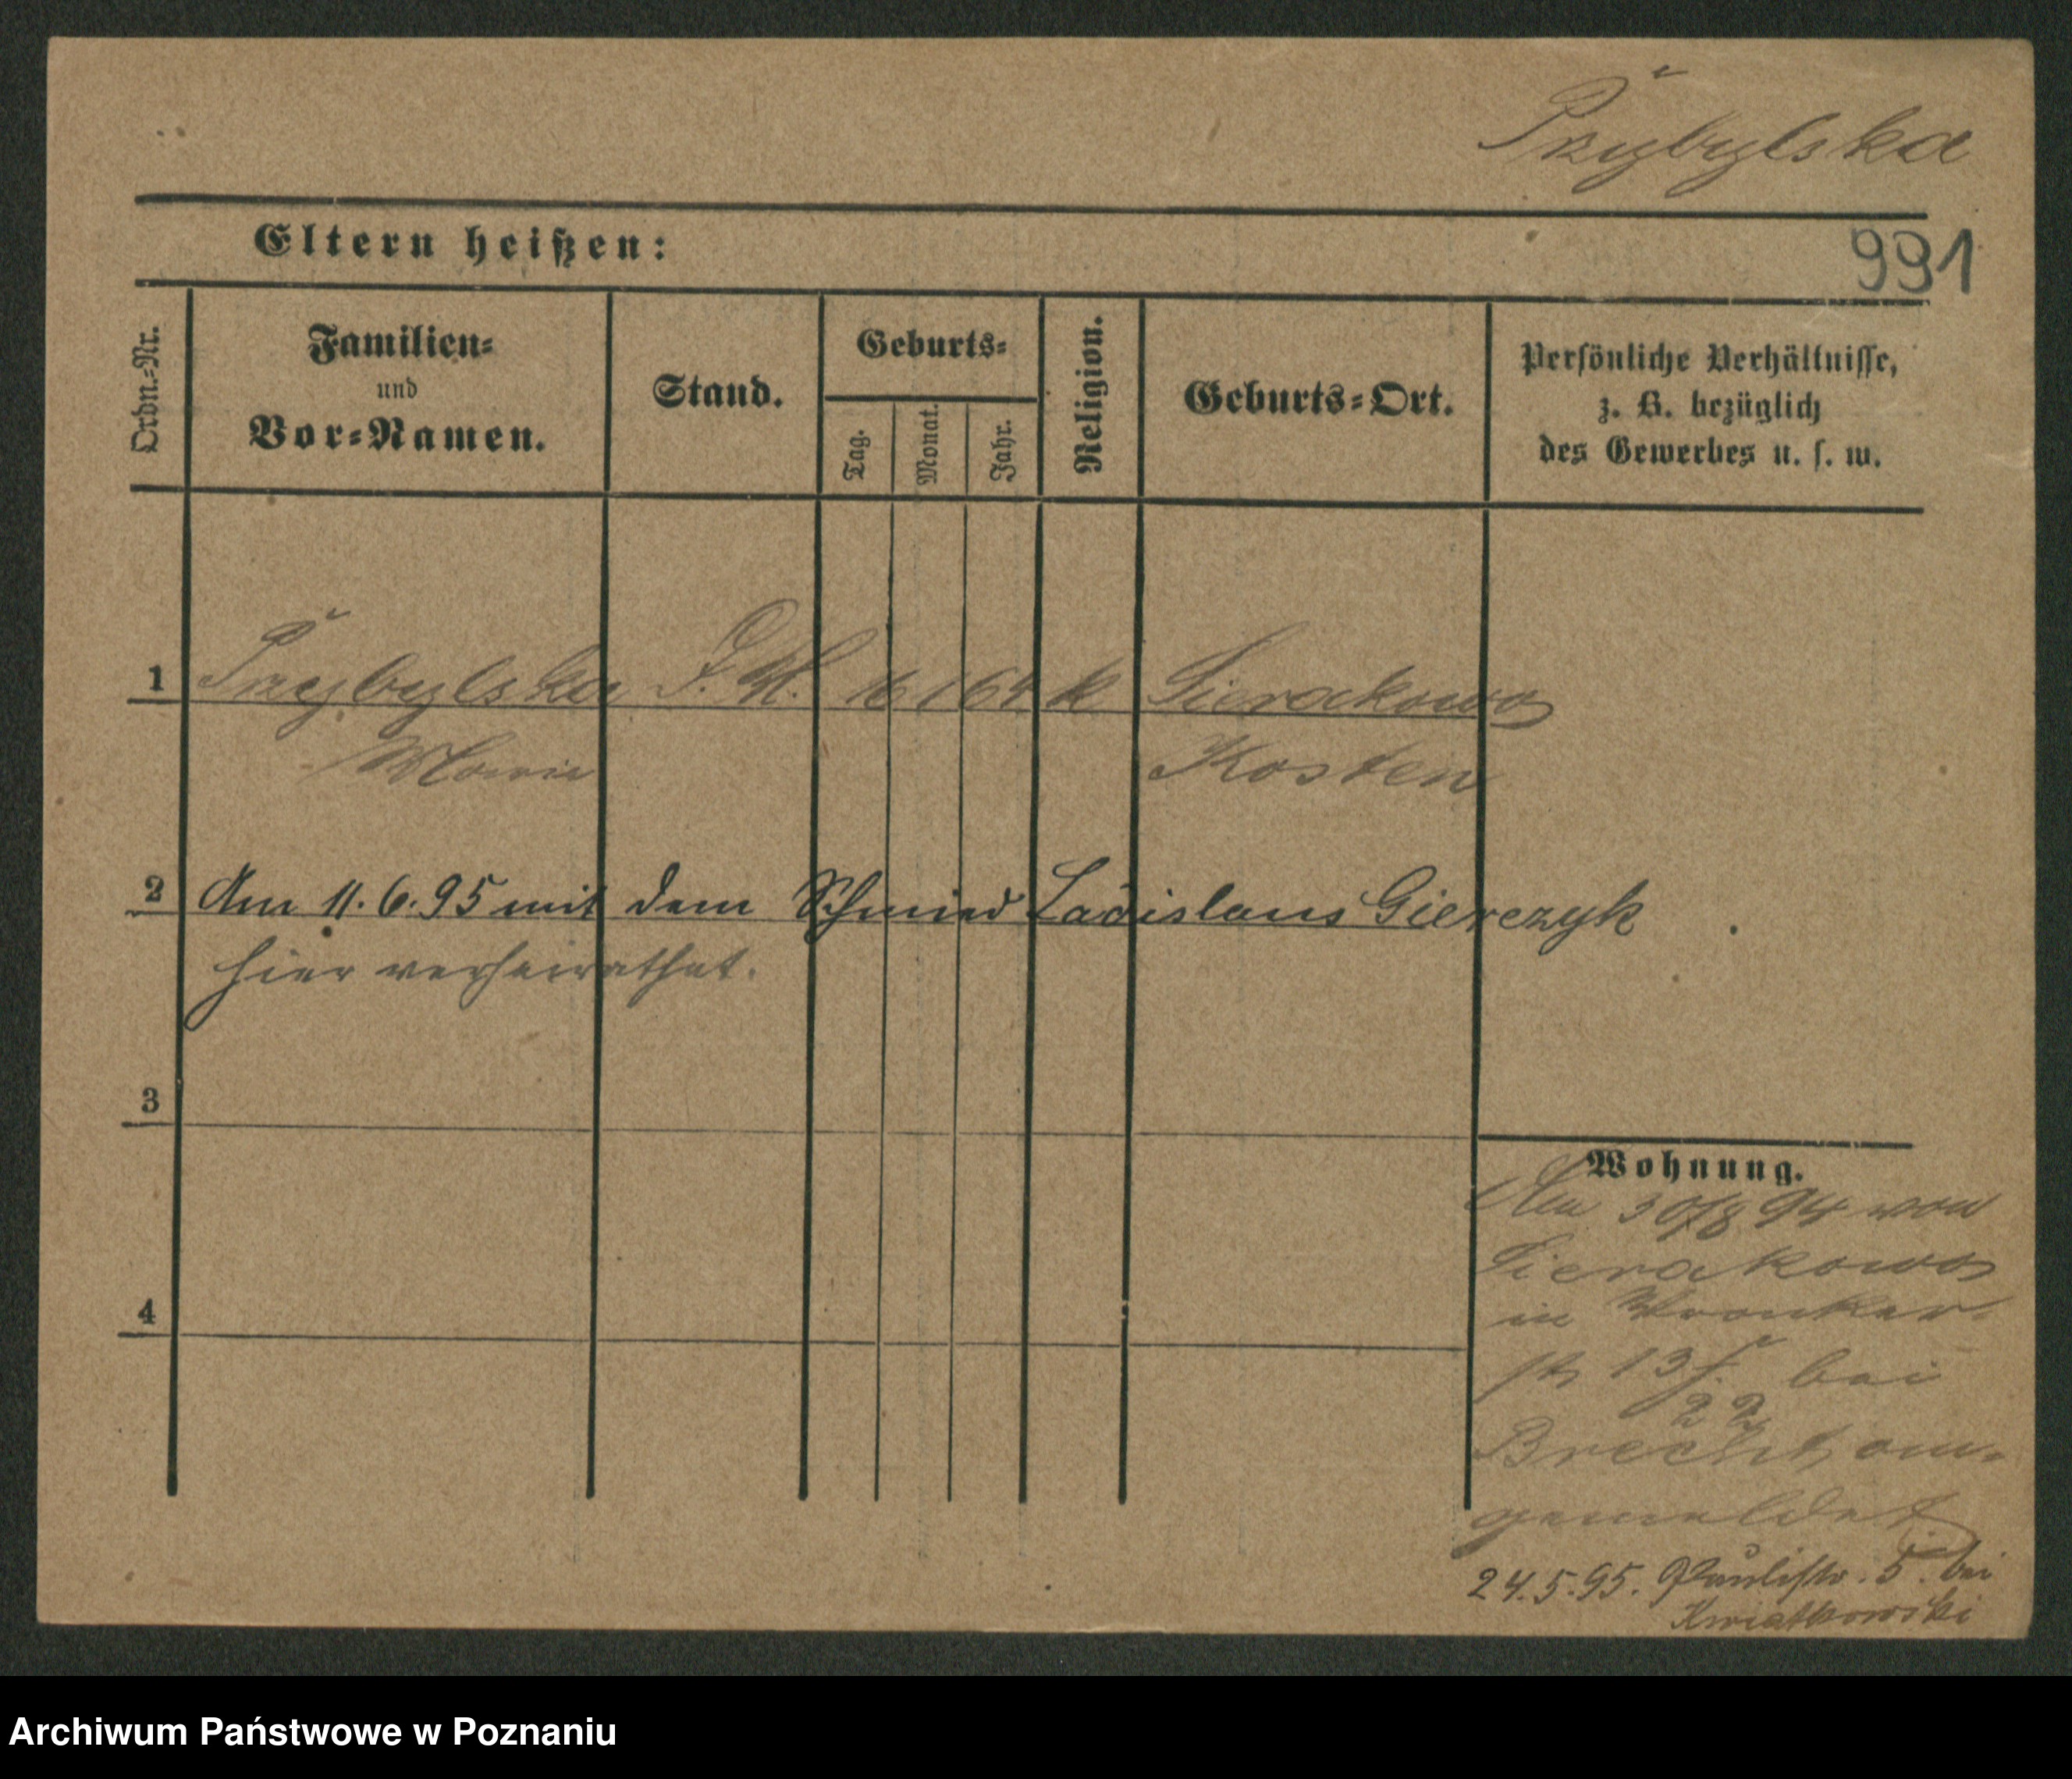 Przybylska
Eltern heißen:
991
Ordn.-Nr.
Familien-
und
Vor-Namen.
Stand.
Geburts-
Tag.
Monat.
Jahr.
Religion.
Geburts-Ort.
Persönliche Verhältnisse,
z. B. bezüglich
des Gewerbes u. s. w.
1 Przybylska D. M. 16 1 64 k Sierakowo
Marie Kosten
2 Am 11. 6. 95 mit dem Schmied Ladislaus Gierczyk
hier verheirathet.
3
Wohnung.
Am 30/8 94 von
Sierakowo
in Wronker
str 13 bei
22
Brecht an-
gemeldet
4
24.5.95. Paulistr. 5. bei
Kwiatkowski
Archiwum Państwowe w Poznaniu